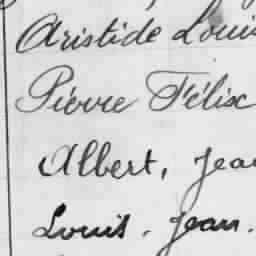 Aristide Louis
Piérre Félix
Albert, Jean
Louis. Jean.